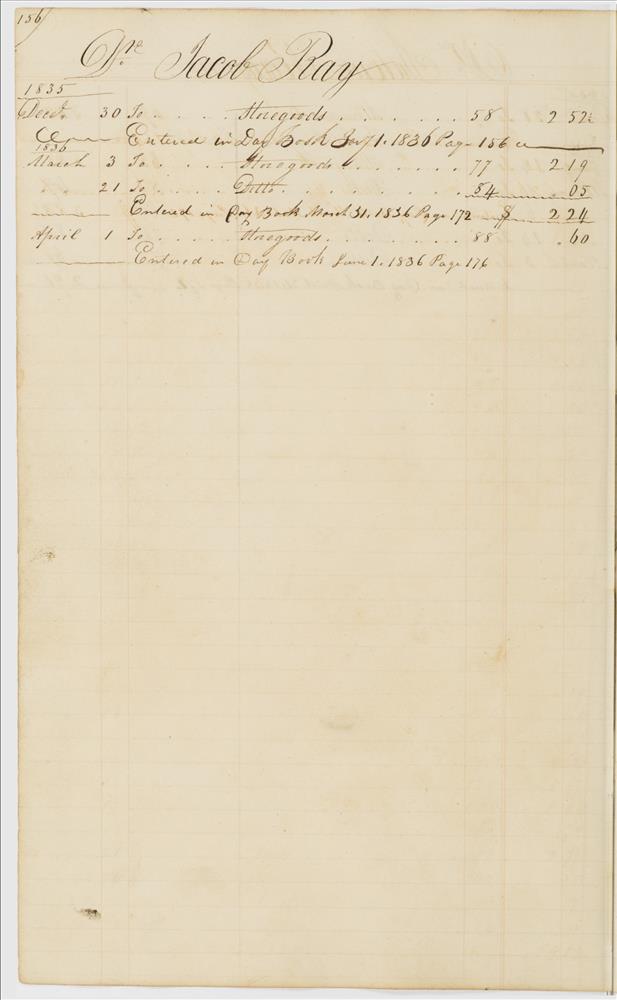 156
Dr. Jacob Ray
1835
Decr. 30 To . . . . Storegoods . . . . . . . 58 2 52½
Entered in Day Book Jany 1. 1836 Page 156
1836
March 3 To . . . . Storegoods . . . . . . . 77 2 19
21 To . . . . Ditto . . . . . . . . . 84 . 05
Entered in Day Book March 31. 1836 Page 172 $ 2 24
April 1 To . . . . . Storegoods . . . . . . . 88 . 60
Entered in Day Book June 1. 1836 Page 176